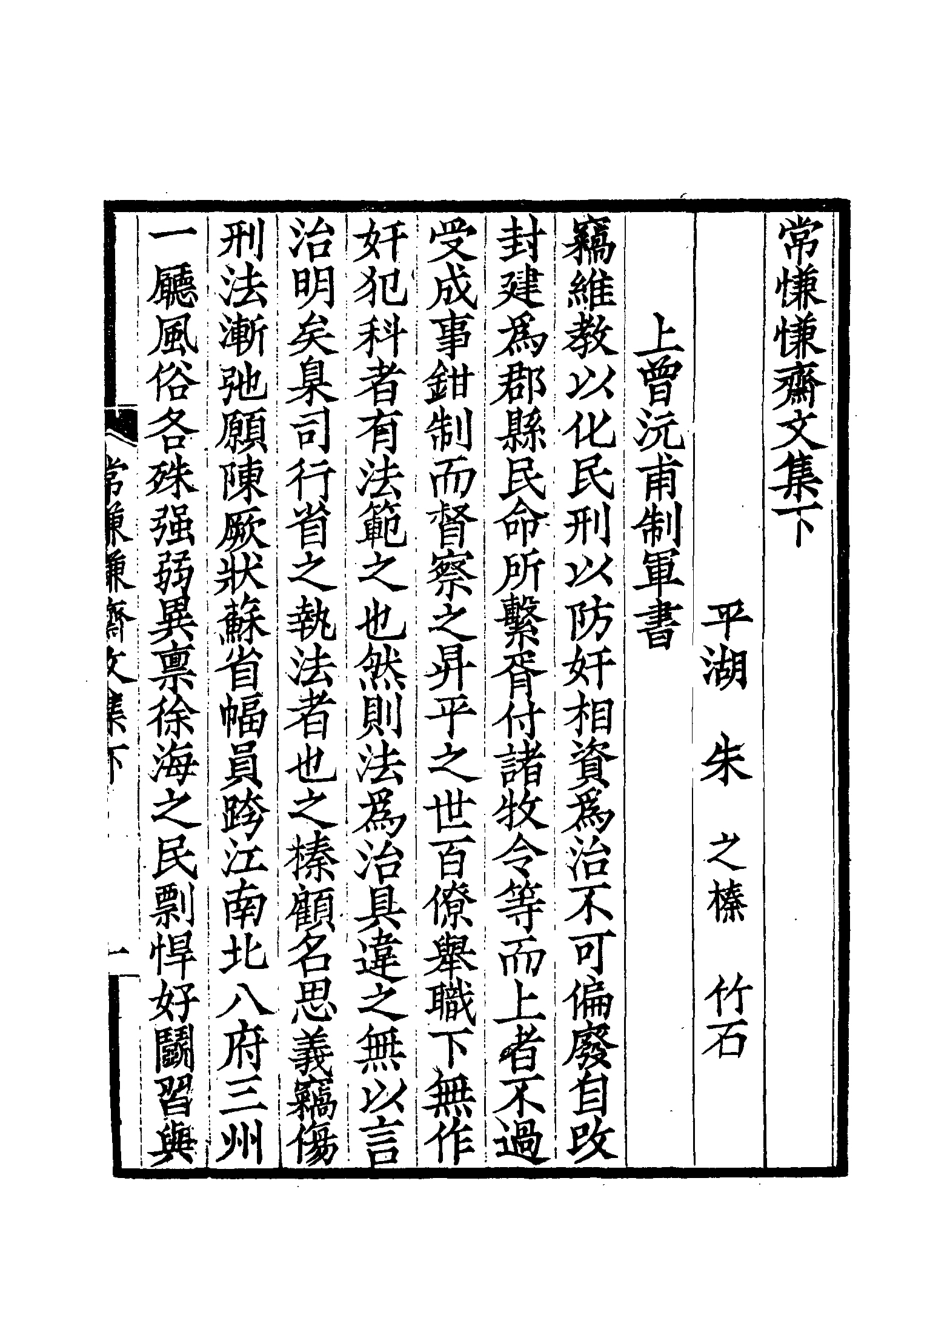 常慊慊齋文集下
平湖 朱 之榛 竹石
上曾沅甫制軍書
竊維敎以化民刑以防奸相資爲治不可偏廢自改
封建爲郡縣民命所繫胥付諸牧令等而上者不過
受成事鉗制而督察之昇平之世百僚舉職下無作
奸犯科者有法範之也然則法爲治具違之無以言
治明矣臬司行省之執法者也之榛顧名思義竊傷
刑法漸弛願陳厥狀蘇省幅員跨江南北八府三州
一廳風俗各殊强弱異禀徐海之民剽悍好鬬習與
常慊慊齋文集下
一